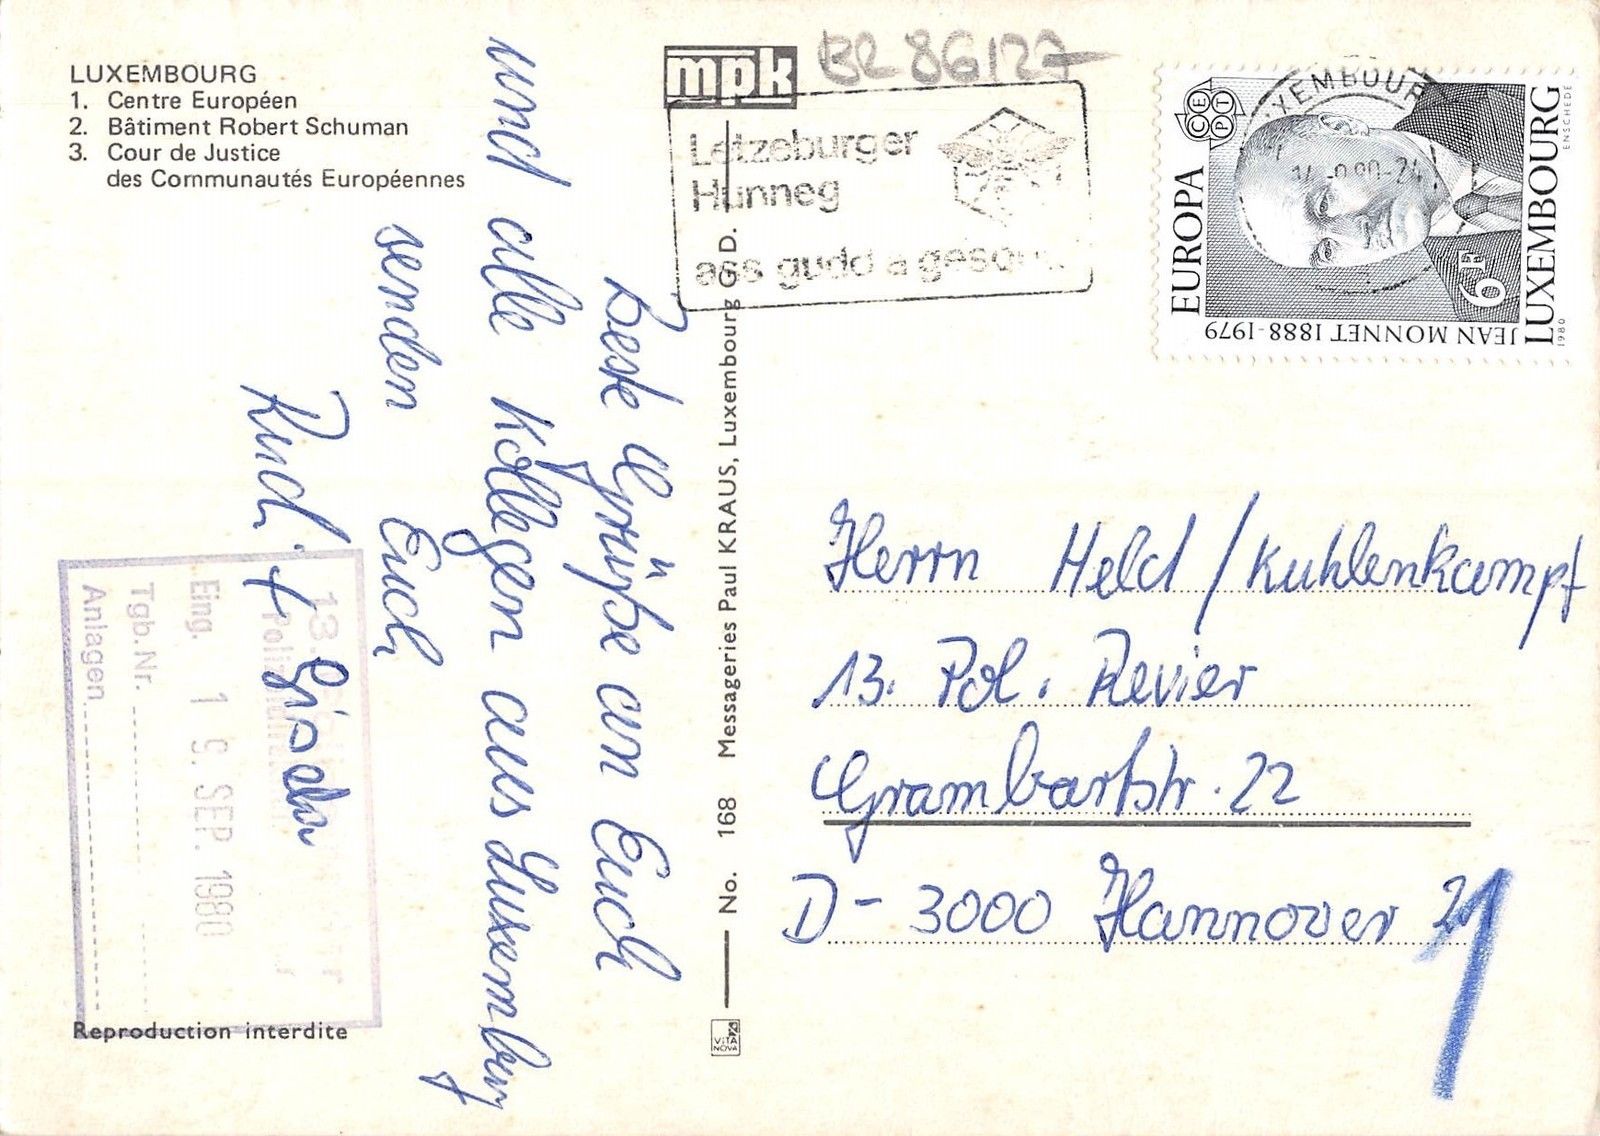 LUXEMBOURG
1. Centre Européen
2. Bâtiment Robert Schuman
3. Cour de Justice
des Communautés Européennes
mpk
BR 86127
Letzeburger
Hunneg
ass gudd a
XEMBOUR
CEPT
EUROPA
LUXEMBOURG
JEAN MONNET 1888-1979
6F
1980
ENSCHEDE
Beste Grüße an Euch
und alle Kollegen aus Luxemburg
senden Euch
Rudi + Gisela
13.
Eing. 19. SEP. 1980
Tgb.Nr.
Anlagen
Reproduction interdite
No. 168 Messageries Paul KRAUS, Luxembourg G.D.
VITA NOVA
Herrn Held / Kuhlenkampf
13. Pol. Revier
Grambartstr. 22
D-3000 Hannover 21
1